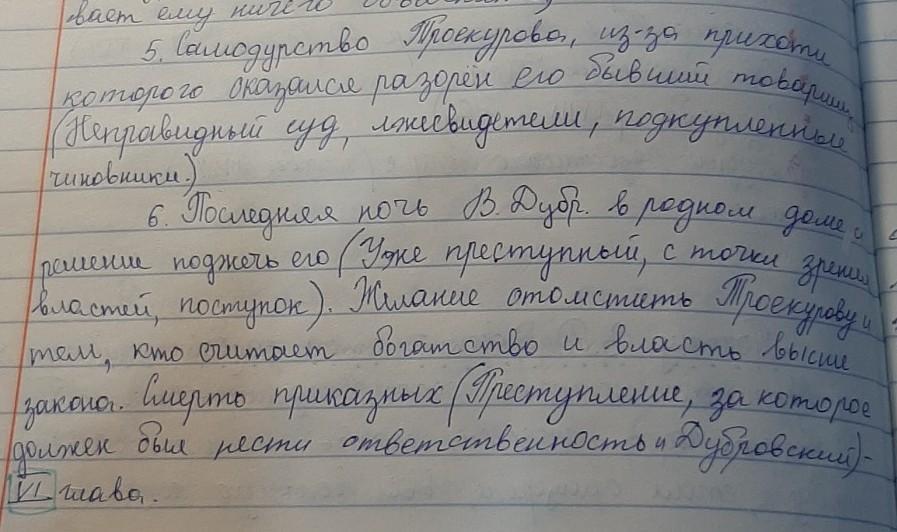 вает ему ничего
5. Самодурство Троекурова, из-за прихоти
которого оказался разорён его бывший товарищ
(Неправидный суд, лжесвидетели, подкупленные
чиновники.)
6. Последняя ночь В. Дубр. в родном доме и
решение поджечь его (Уже преступный, с точки зрения
властей, поступок). Желание отомстить Троекурову и
тем, кто считает богатство и власть выше
закона. Смерть приказных (Преступление, за которое
должен был нести ответственность и Дубровский)-
VI глава.